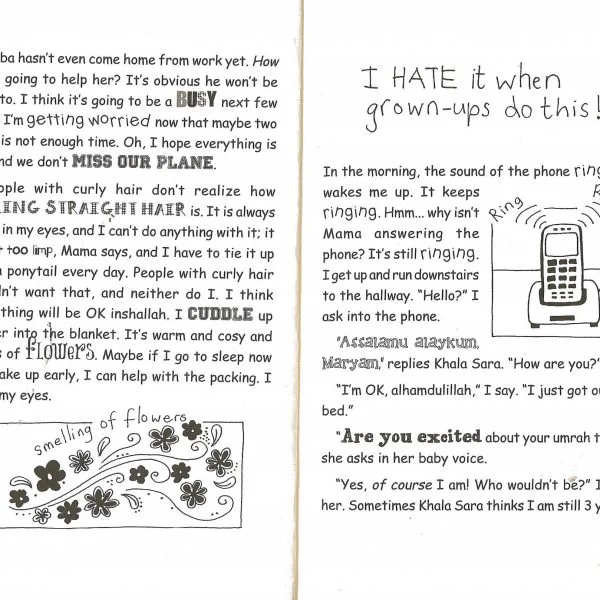 ba hasn't even come home from work yet. How
going to help her? It's obvious he won't be
to. I think it's going to be a BUSY next few
I'm getting worried now that maybe two
is not enough time. Oh, I hope everything is
nd we don't MISS OUR PLANE.
ople with curly hair don't realize how
ING STRAIGHT HAIR is. It is always
in my eyes, and I can't do anything with it; it
t too limp, Mama says, and I have to tie it up
a ponytail every day. People with curly hair
dn't want that, and neither do I. I think
thing will be OK inshallah. I CUDDLE up
er into the blanket. It's warm and cosy and
s of flowers. Maybe if I go to sleep now
ake up early, I can help with the packing. I
my eyes.
smelling of flowers
I HATE it when
grown-ups do this!
In the morning, the sound of the phone ring
wakes me up. It keeps
ringing. Hmm... why isn't
Mama answering the
phone? It's still ringing.
I get up and run downstairs
to the hallway. "Hello?" I
ask into the phone.
Ring
R
"Assalamu alaykum,
Maryam," replies Khala Sara. "How are you?"
"I'm OK, alhamdulillah," I say. "I just got ou
bed."
"Are you excited about your umrah t
she asks in her baby voice.
"Yes, of course I am! Who wouldn't be?" I
her. Sometimes Khala Sara thinks I am still 3 y